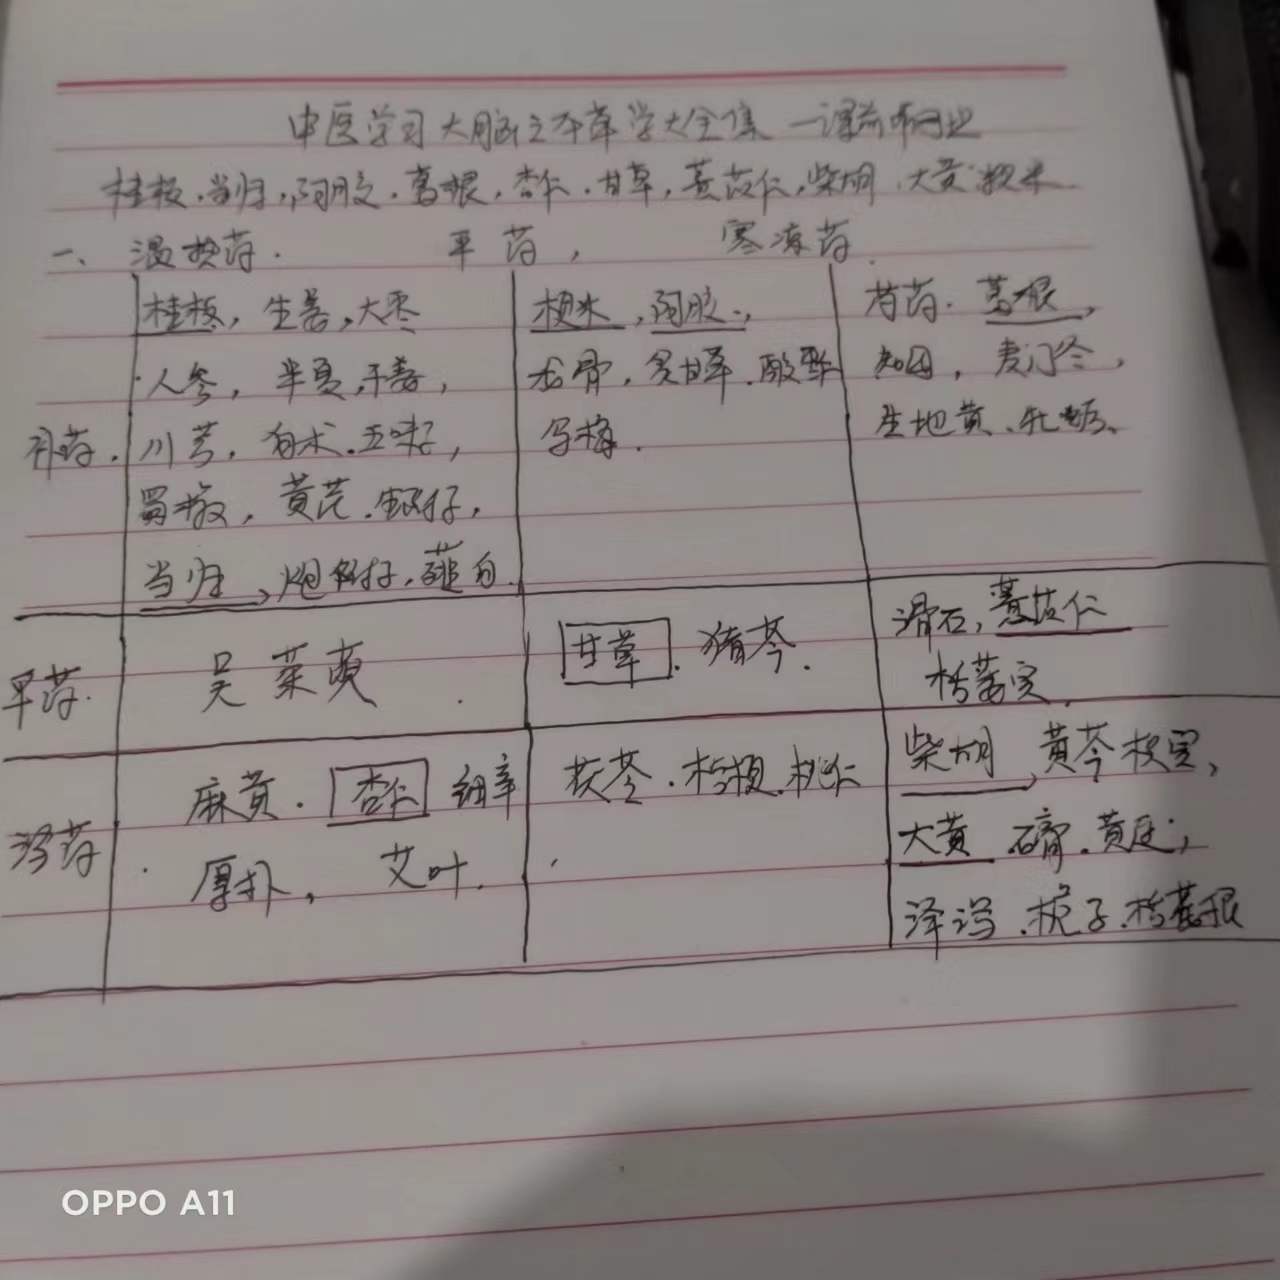 中医学习大脑之本草学大全集 一课前作业
桂枝,当归,阿胶.葛根,杏仁.甘草,薏苡仁,柴胡.大黄.粳米
一、温热药. 平药, 寒凉药.
桂枝,生姜,大枣 粳米,阿胶., 芍药.葛根,
人参,半夏,干姜, 龙骨,炙甘草.酸枣 知母,麦门冬,
补药.川芎,白术.五味子, 乌梅. 生地黄.牡蛎.
蜀椒,黄芪.
当归,薤白.
平药. 吴茱萸. 甘草.猪苓. 滑石,薏苡仁
栝蒌实.
麻黄.杏仁 细辛 茯苓.桔梗.桃仁 柴胡,黄芩枳实,
泻药.厚朴,艾叶. 大黄 石膏.黄连,
泽泻.栀子.栝蒌根
OPPO A11